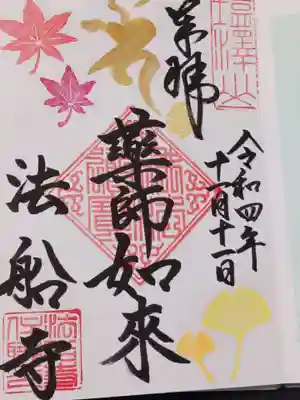 奉拝
令和四年
十一月十一日
薬師如來
法船寺